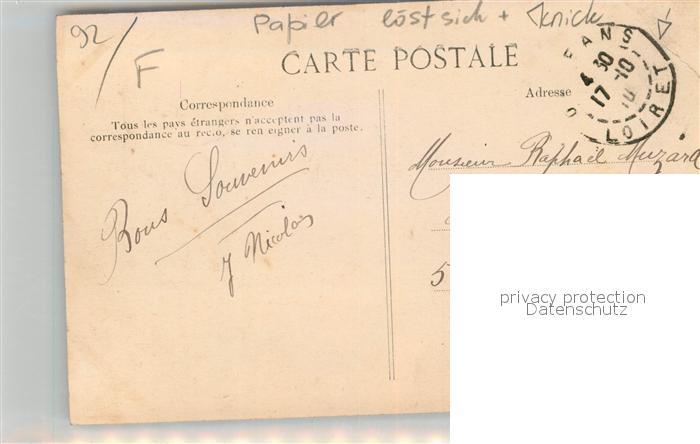 92/
F
Papier löst sich + Knick
CARTE POSTALE
Correspondance
Tous les pays étrangers n'acceptent pas la
correspondance au recto, se renseigner à la poste.
Bons Souvenirs
J Nicolas
Adresse
Monsieur Raphaël Muzard
5
ANS
30
17-10
10
LOIRET
privacy protection
Datenschutz